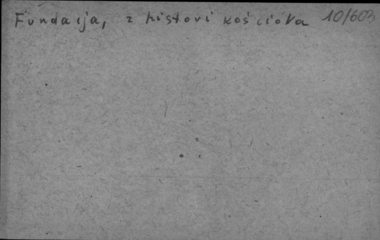 Fundacja, z histori kościoła 10/603